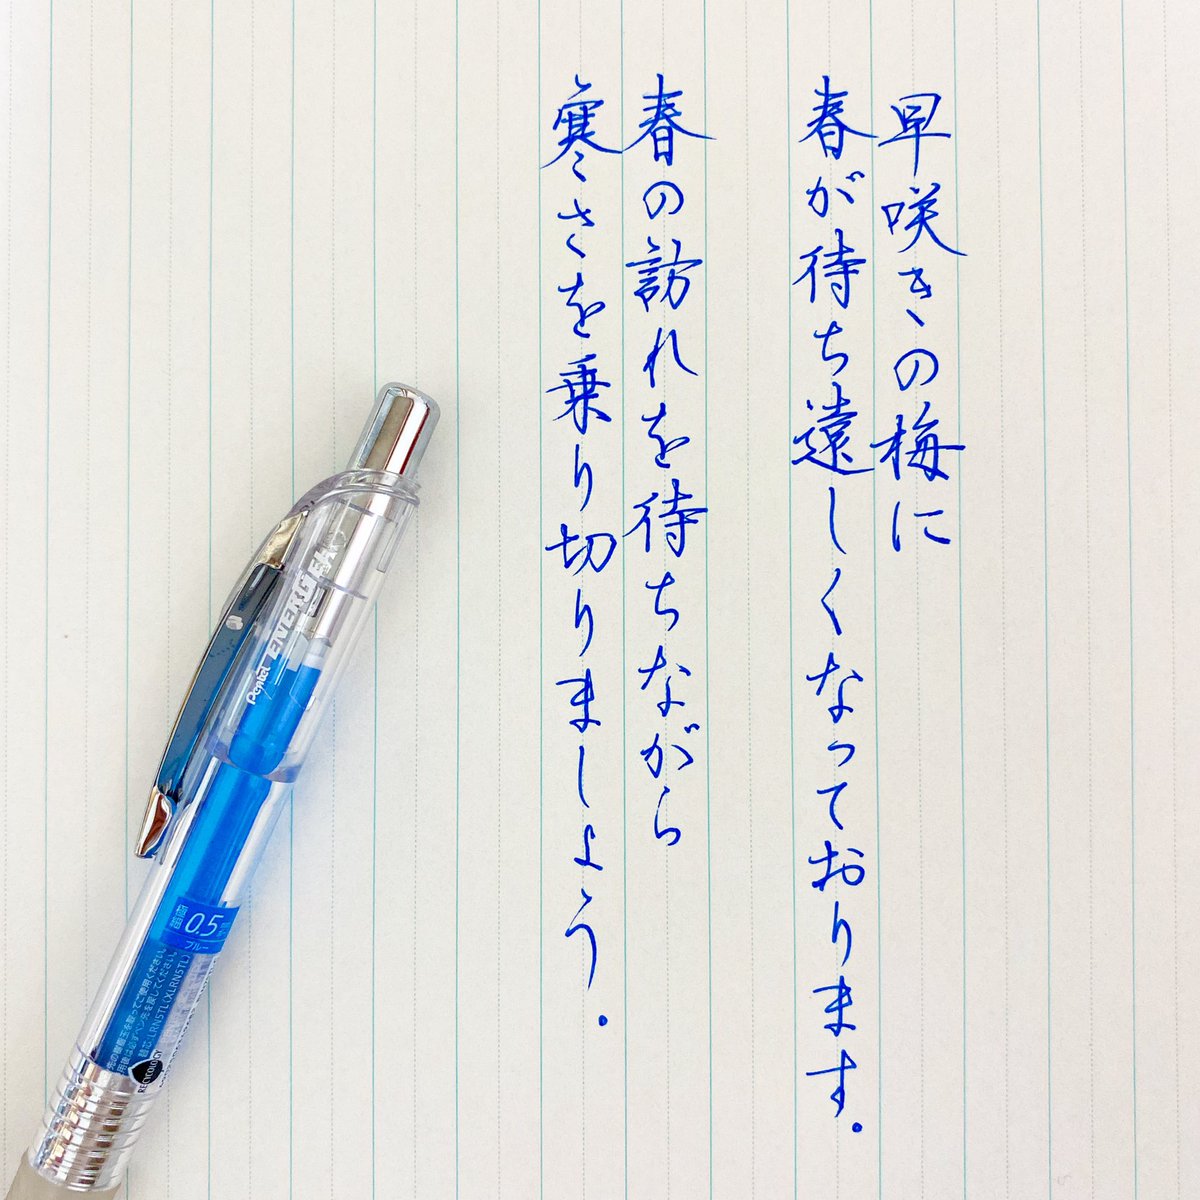 早咲きの梅に
春が待ち遠しくなっております。
春の訪れを待ちながら
寒さを乗り切りましょう。
Pentel ENERGEL
極細 0.5
ブルー
替芯:LRN5TL(XLRN5TL)
RECYCOLOGY